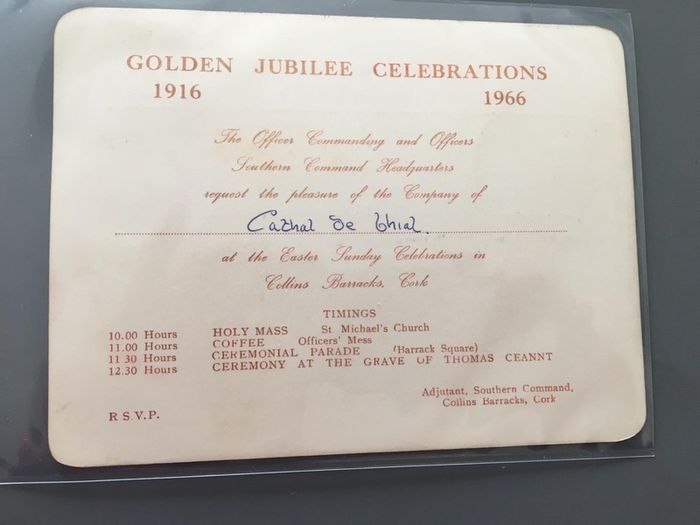 GOLDEN JUBILEE CELEBRATIONS
1916 1966
The Officer Commanding and Officers
Southern Command Headquarters
request the pleasure of the Company of
Cathal de bhial.
at the Easter Sunday Celebrations in
Collins Barracks, Cork
TIMINGS
10.00 Hours HOLY MASS St Michael's Church
11.00 Hours COFFEE Officers' Mess
11 30 Hours CEREMONIAL PARADE (Barrack Square)
12.30 Hours CEREMONY AT THE GRAVE OF THOMAS CEANNT
Adjutant, Southern Command,
Collins Barracks, Cork
R S.V.P.